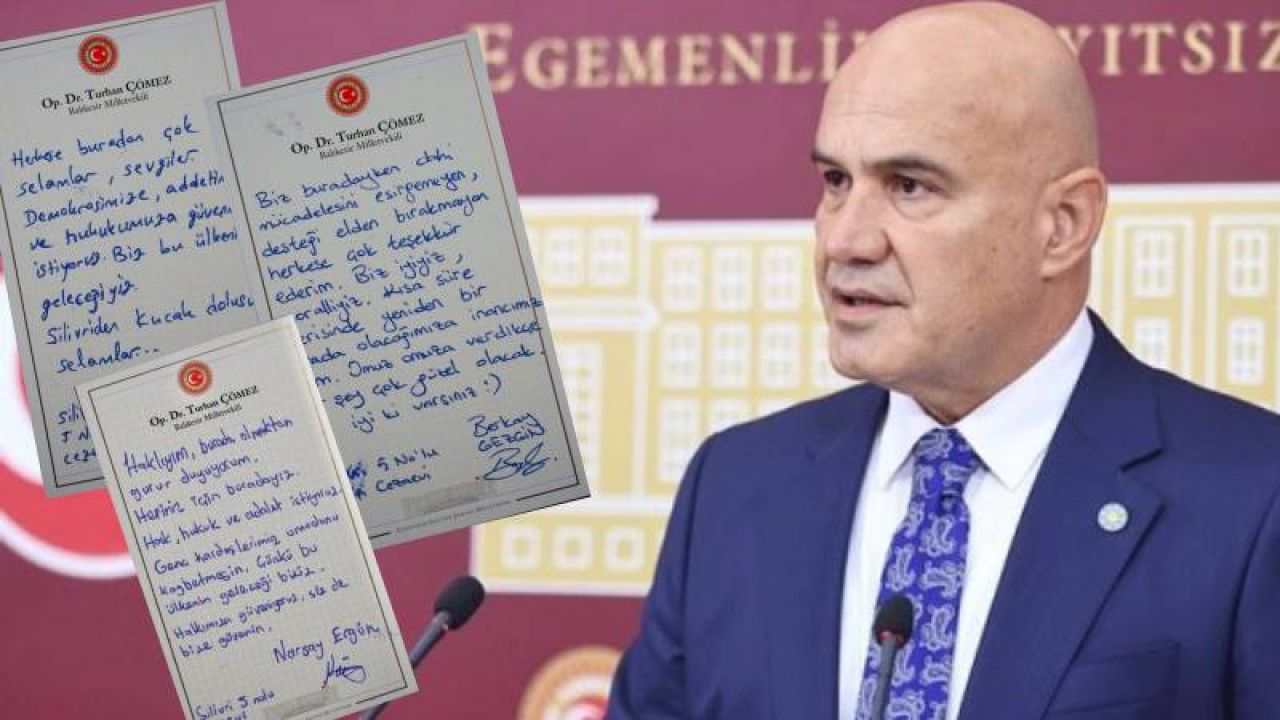 EGEMENLİ YITSIZ
Op. Dr. Turhan ÇÖMEZ
Balıkesir Milletvekili
Herkese buradan çok
selamlar, sevgiler
Demokrasimize, adaletin
ve hukukumuza güven
istiyoruz. Biz bu ülkeni
geleceğiyiz
Silivriden kucak dolusu
selamlar...
Sili
5 N
Ceza
Op. Dr. Turhan ÇÖMEZ
Balıkesir Milletvekili
Biz buradayken dahi
mücadelesini esirgemeyen,
desteği elden bırakmayan
herkese çok teşekkür
ederim. Biz iyiyiz,
oralliyiz. Kısa süre
erisinde yeniden bir
ada olacağımıza inancımız
m. Omuz omuza verdikçe
şey çok güzel olacak.
iyi ki varsınız :)
Berkay
GEZGİN
5 No'lu
Cezaevi
Op. Dr. Turhan ÇÖMEZ
Balıkesir Milletvekili
Haklıyım, burada olmaktan
gurur duyuyorum.
Hepiniz için buradayız.
Hak, hukuk ve adalet istiyoruz.
Genç kardeşlerimiz umudunu
kaybetmesin. Çünkü bu
ülkenin geleceği biziz.
Hakkımıza güveniyoruz, siz de
bize güvenin.
Ergün
Silivri 5 nolu